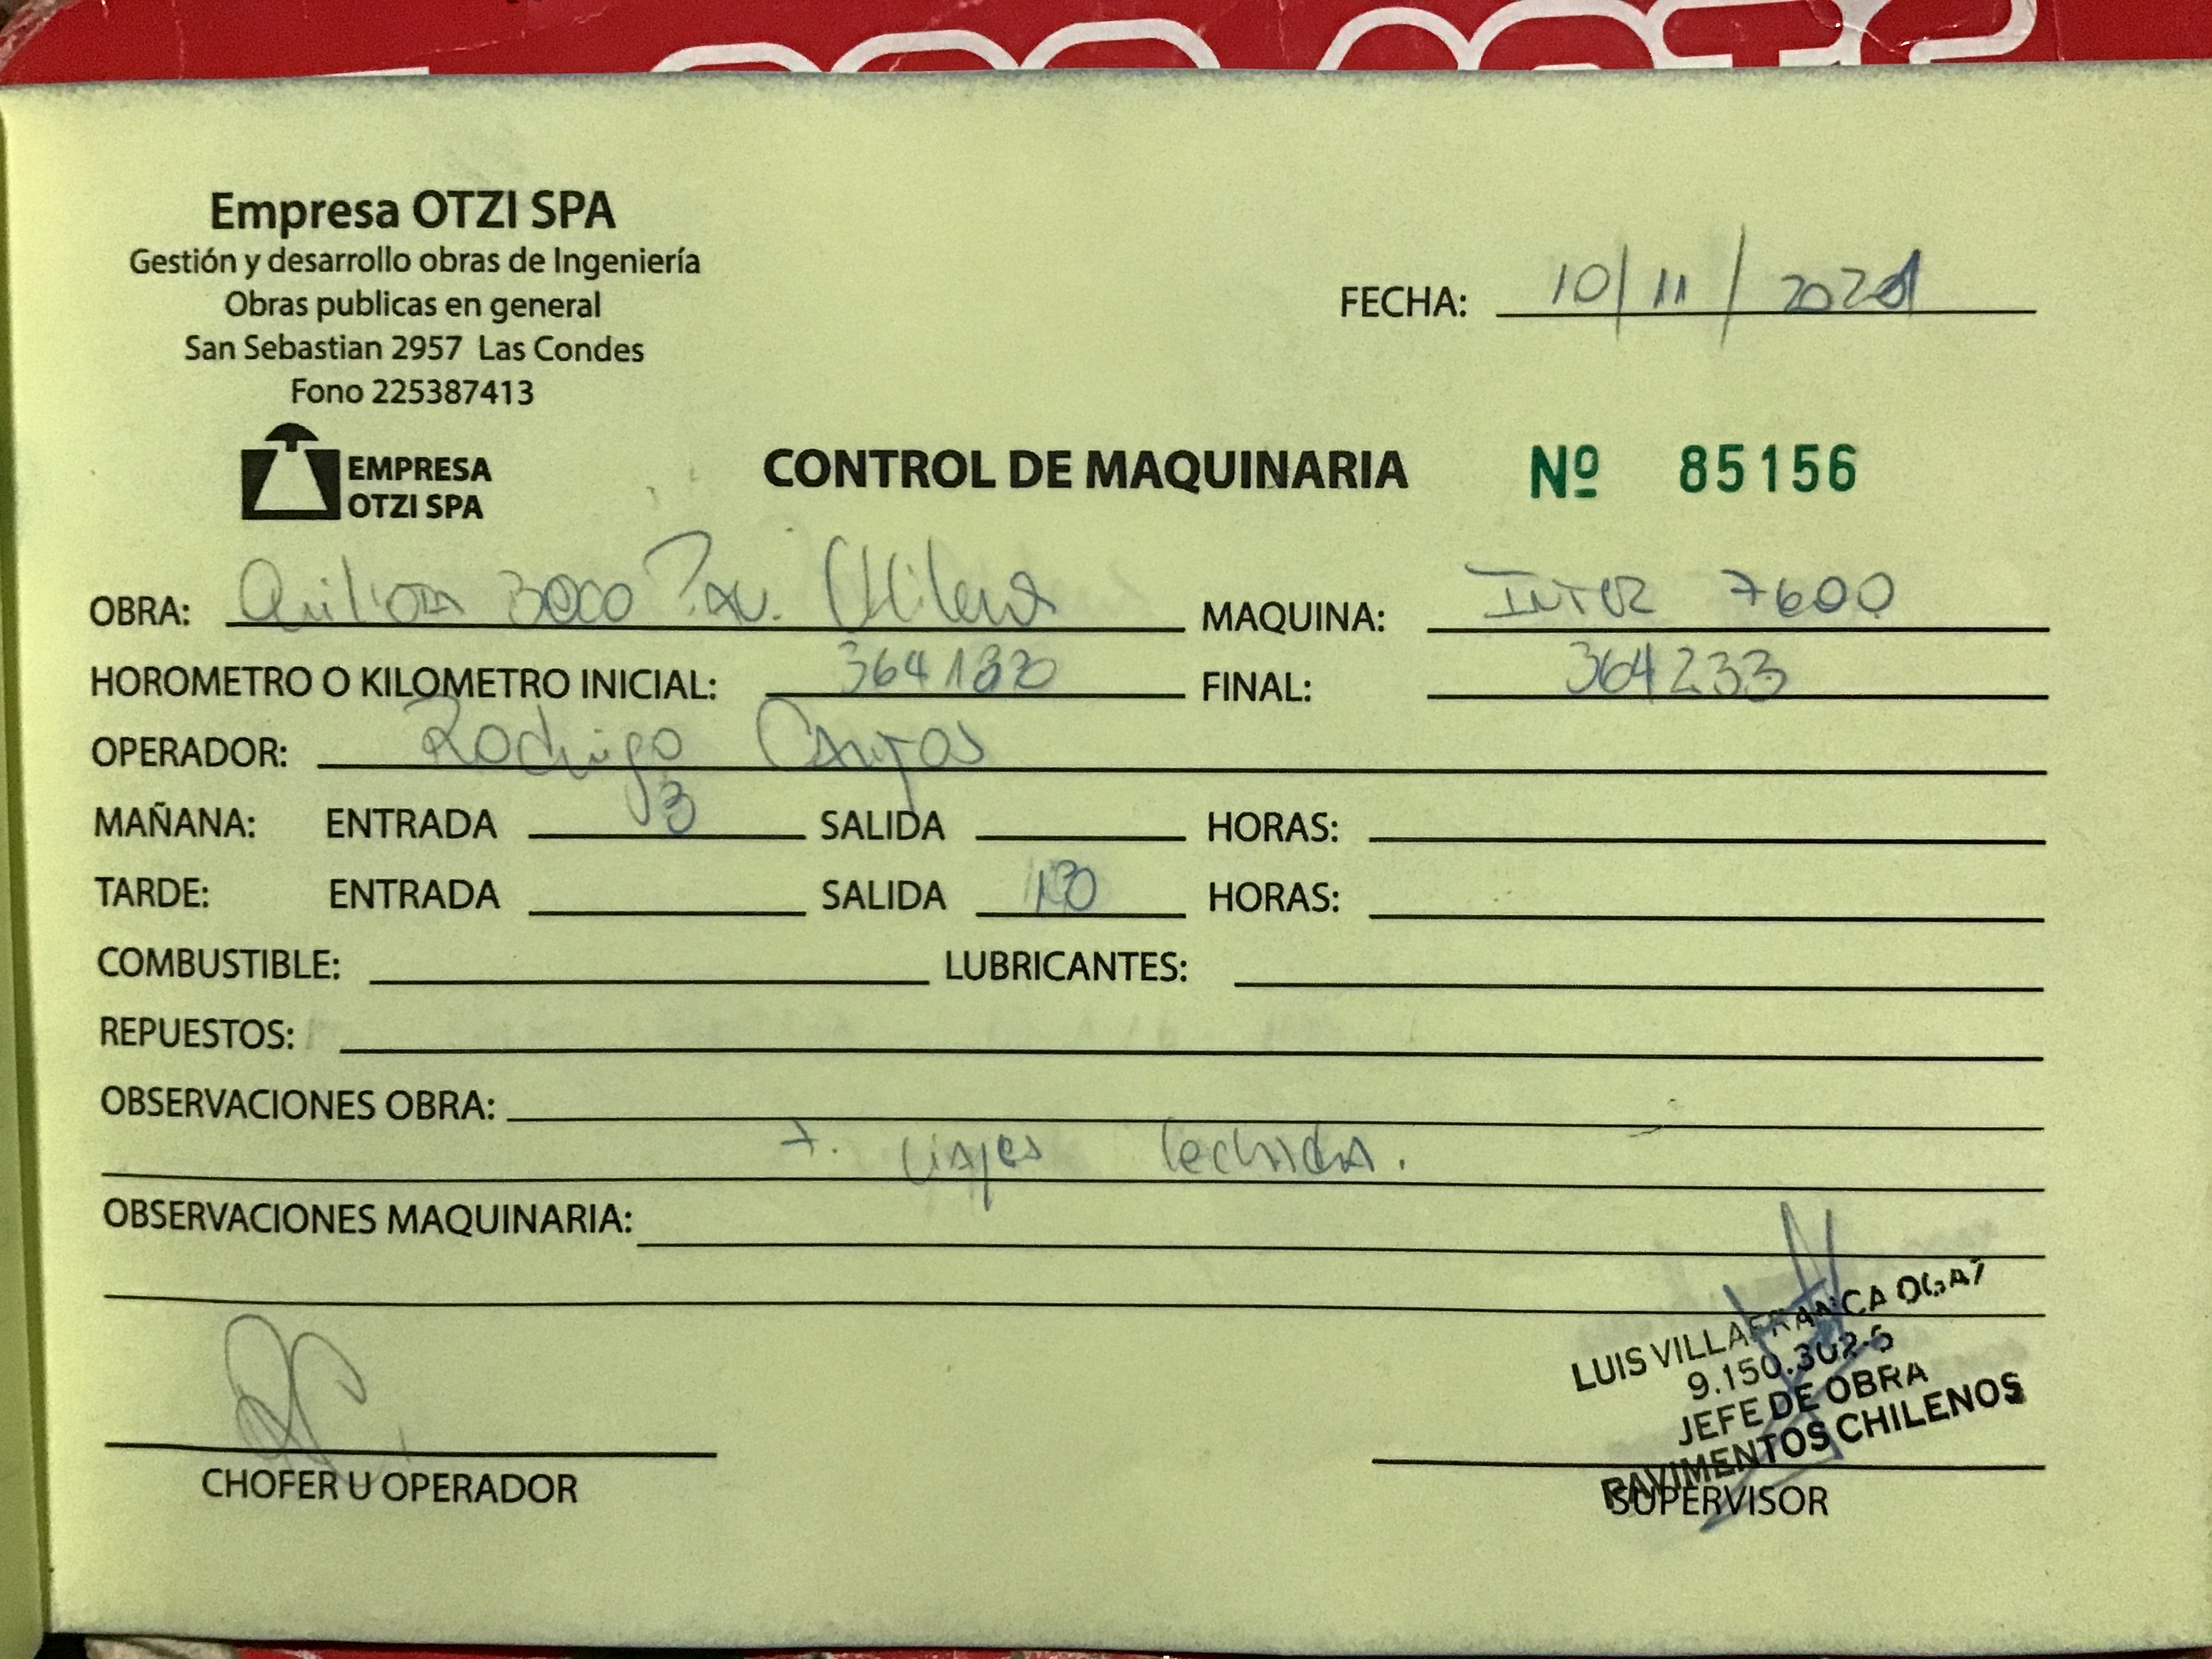 Empresa OTZI SPA
Gestión y desarrollo obras de Ingeniería
Obras publicas en general
San Sebastian 2957 Las Condes
Fono 225387413
FECHA: 10/11/2021
EMPRESA
OTZI SPA
CONTROL DE MAQUINARIA Nº 85156
OBRA: 3000 Pav. Chilenos MAQUINA: INTER 7600
HOROMETRO O KILOMETRO INICIAL: 364 FINAL: 364233
OPERADOR: Rodrigo
MAÑANA: ENTRADA SALIDA HORAS:
TARDE: ENTRADA SALIDA HORAS:
COMBUSTIBLE: LUBRICANTES:
REPUESTOS:
OBSERVACIONES OBRA:
viajes lechada.
OBSERVACIONES MAQUINARIA:
LUIS VILLAFRANCA
9.150.302-6
JEFE DE OBRA
PAVIMENTOS CHILENOS
CHOFER U OPERADOR SUPERVISOR